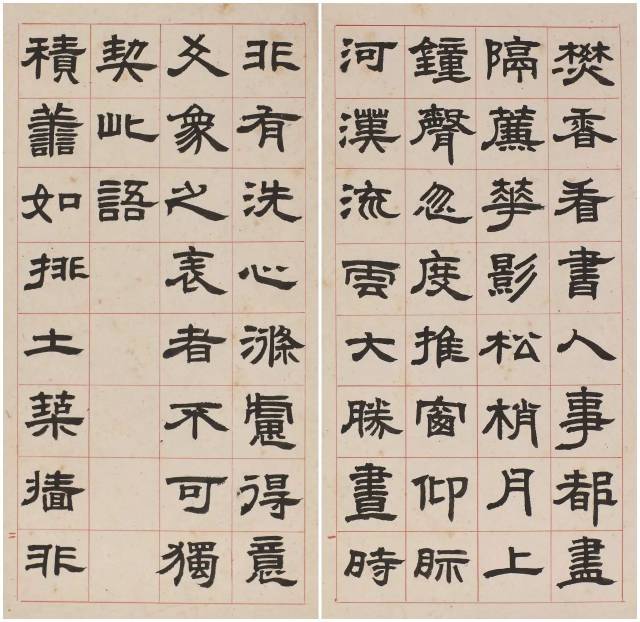 焚香看書人事都盡
隔簾華影松梢月上
鐘聲忽度推窗仰眎
河漢流雲大勝晝時
非有洗心滌慮得意
爻象之表者不可獨
契此語
積善如排土築牆非